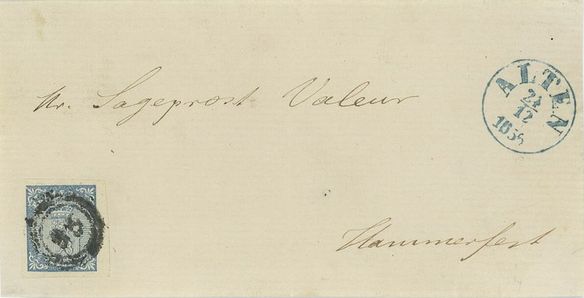 Hr. Sageprost Valeur
Hammerfest
ALTEN
24
12
1856